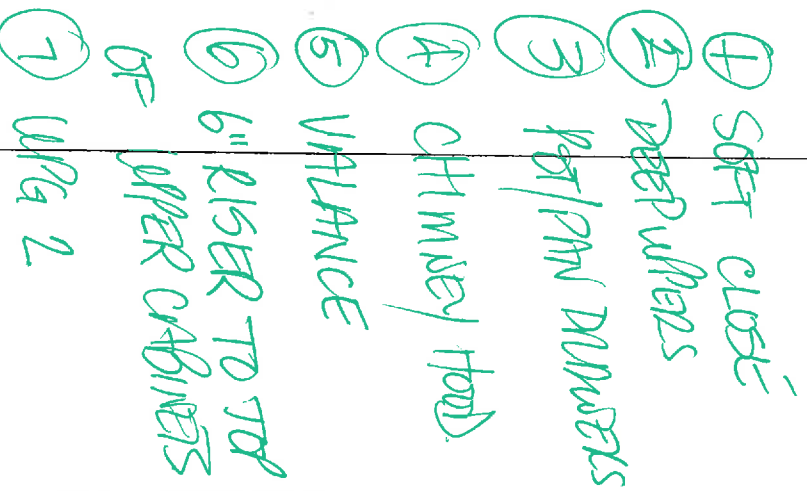 1 SOFT CLOSE
2 DEEP UPPERS
3 POT/PAN DRAWERS
4 CHIMNEY HOOD
5 VALANCE
6 6" RISER TO TOP
OF UPPER CABINETS
7 UPG 2